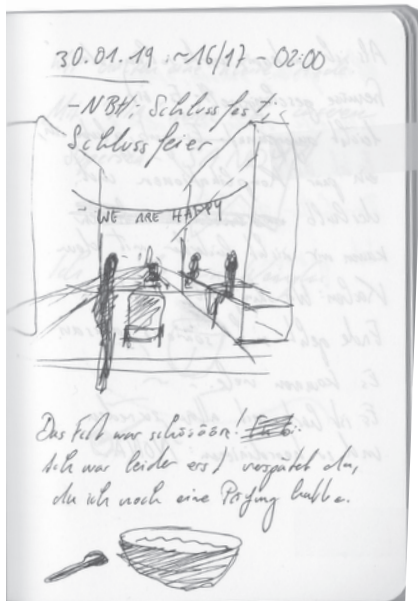 30.01.19 :~16/17 - 02:00
-NBH; Schlussfest;
Schlussfeier
WE ARE HAPPY
Das Fest war schööön!
Ich war leider erst verspätet da,
da ich noch eine Prüfung hatte.